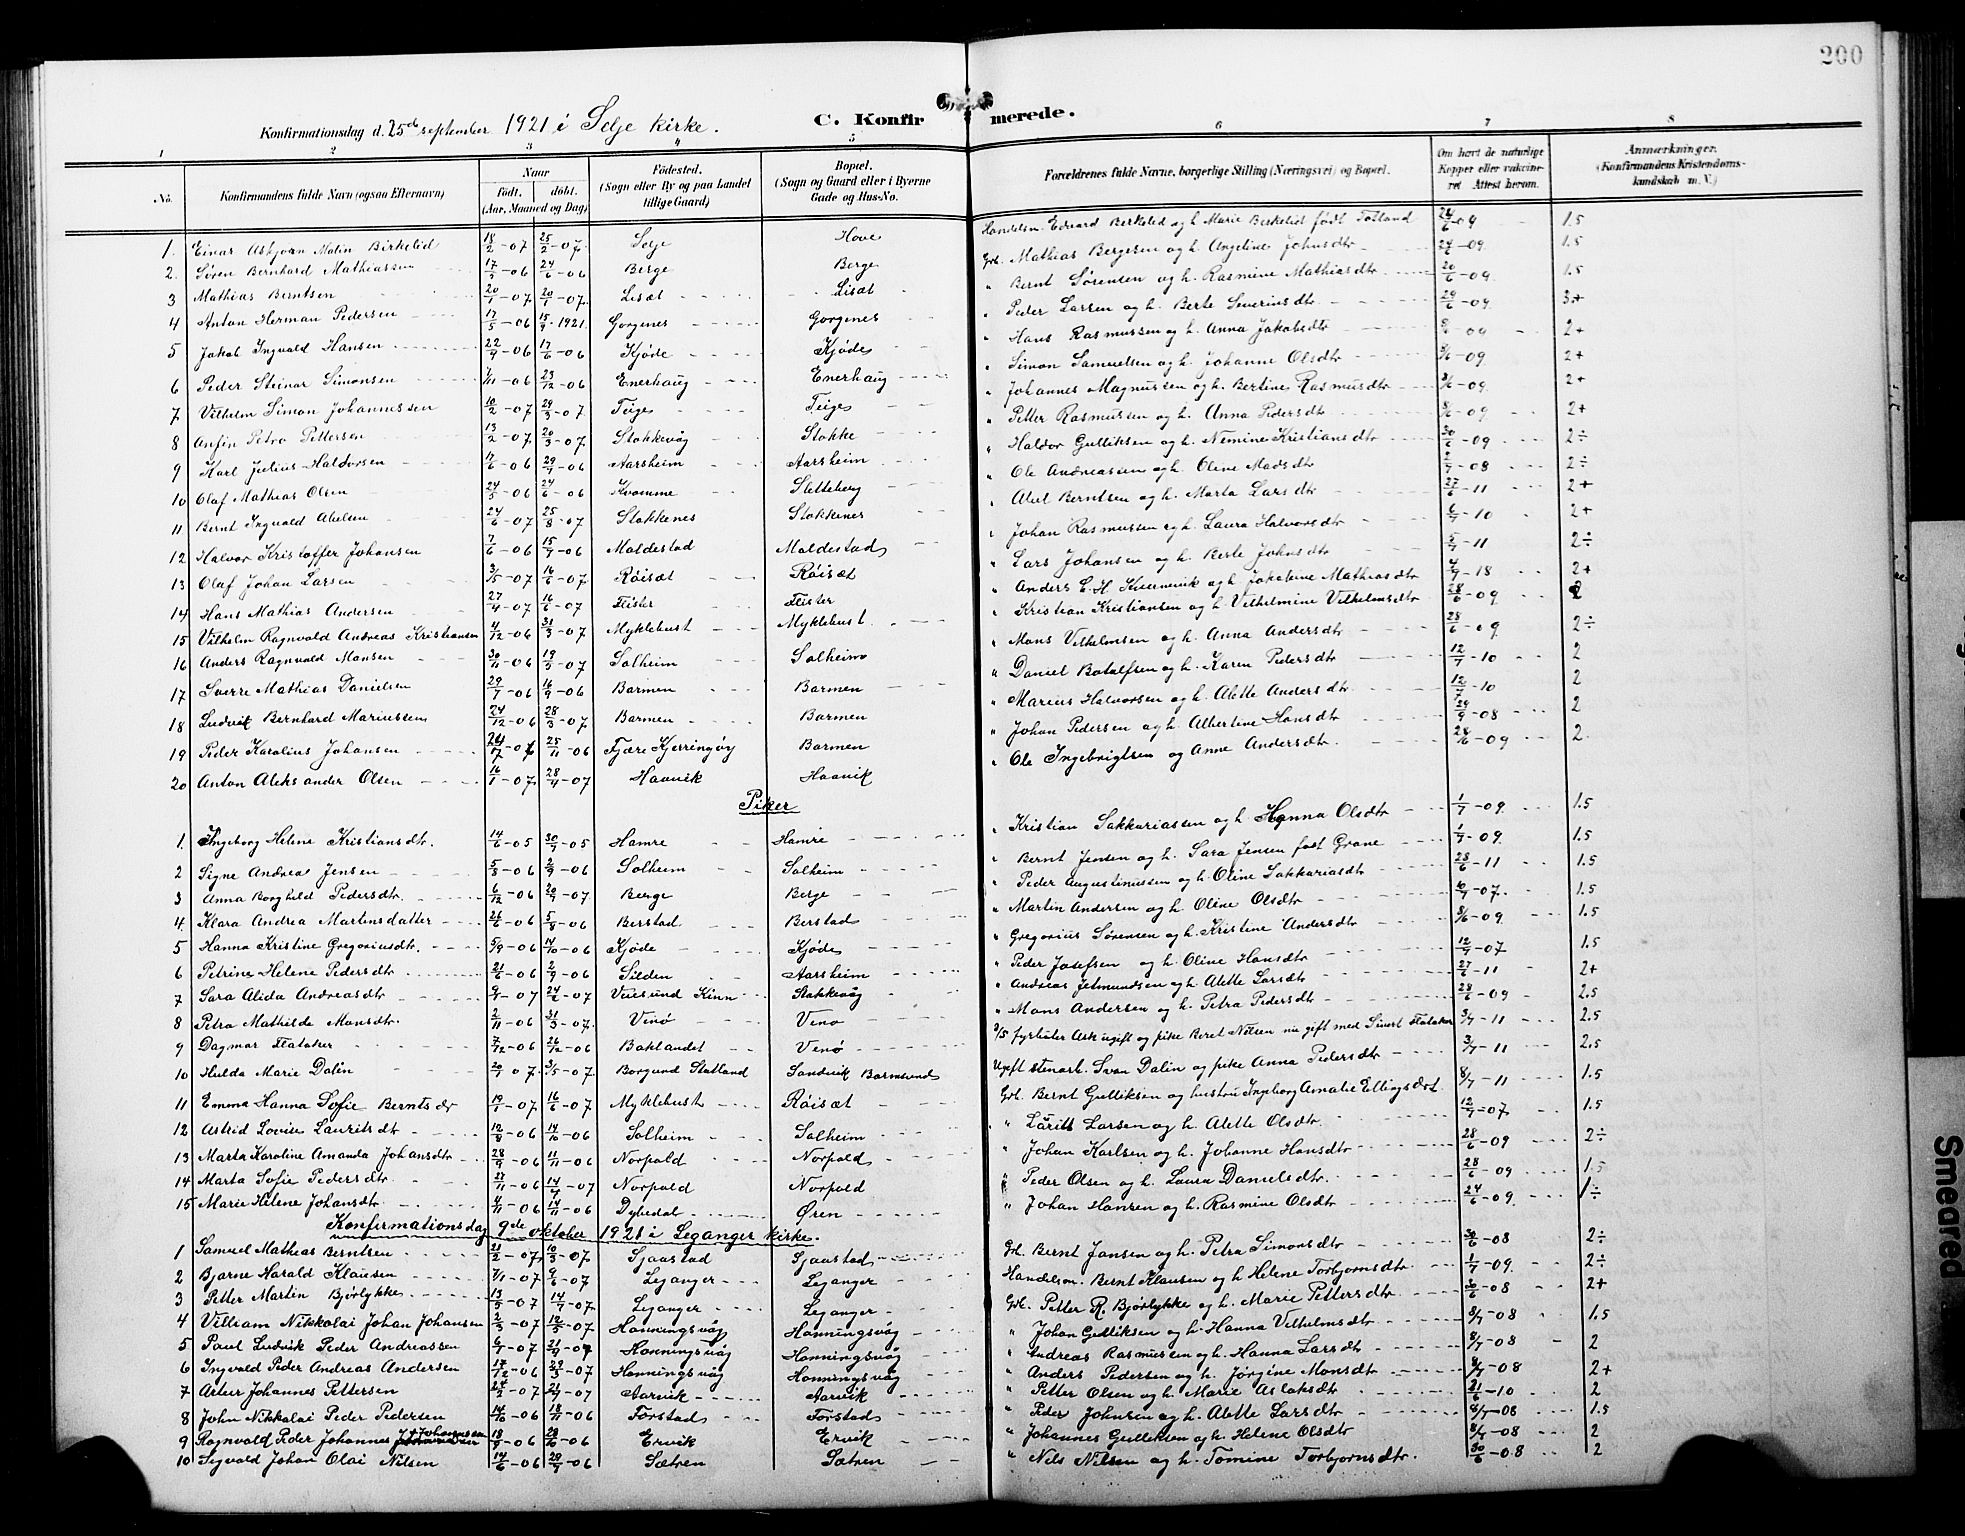 200
Konfirmationsdag d. 25de september 1921 i Selje kirke. C. Konfirmerede.
1 2 3 4 5 6 7 8
No. Konfirmandens fulde Navn (ogsaa Efternavn) Naar født. døbt. (Aar, Maaned og Dag) Fødested. (Sogn eller By og paa Landet tillige Gaard) Bopæl. (Sogn og Gaard eller i Byerne Gade og Hus-No. Forældrenes fulde Navne, borgerlige Stilling (Næringsvei) og Bopæl. Om havt de naturlige Kopper eller vaccineret Attest herom. Anmærkninger. (Konfirmandens Kristendomskundskab m. V.)
1. Einar Asbjørn Malin Birkelid 18/2-07 25/2-07 Selje Hove Handelsm. Edvard Berkelid og h. Marie Berkelid født Totland 24/6-09 1.5
2. Søren Bernhard Mathiassen 17/3-06 24/6-06 Berge Berge Grb. Mathias Bergesen og h. Angeline Johnsdtr 24/6-09 1.5
3 Mathias Berntsen 20/1-07 20/1-07 Lisæt Lisæt " Bernt Sørensen og h. Rasmine Mathiasdtr 20/6-09 1.5
4 Anton Herman Pedersen 17/5-06 15/9-1921 Gorgenes Gorgenes " Peder Larsen og h. Berte Severinsdtr 29/6-09 3+
5 Jakob Ingvald Hansen 22/9-06 17/6-06 Kjøde Kjøde " Hans Rasmussen og h. Anna Jakobsdtr 8/6-09 2+
6 Peder Steinar Simonsen 7/11-06 23/12-06 Enerhaug Enerhaug " Simon Samuelsen og h. Johanne Olsdtr 8/6-09 2+
7 Vilhelm Simon Johannessen 10/2-07 29/3-07 Teige Teige " Johannes Magnussen og h. Bertine Rasmusdtr 8/6-09 2+
8 Anfin Petro Pettersen 13/2-07 20/3-07 Stokkevåg Stokke " Petter Rasmussen og h. Anna Pedersdtr 8/6-09 2+
9 Karl Julius Haldorsen 17/6-06 29/7-06 Aarsheim Aarsheim " Haldor Gulliksen og h. Nemine Kristiansdtr 30/6-09 2÷
10 Olaf Mathias Olsen 24/5-06 24/6-06 Kvamme Sletteberg " Ole Andreassen og h. Oline Madsdtr 2/7-08 2÷
11 Bernt Ingvald Abelsen 24/6-07 25/8-07 Stokkenes Stokkenes " Abel Berntsen og h. Marta Larsdtr 27/6-11 2+
12 Halvor Kristoffer Johansen 7/6-06 15/7-06 Maldestad Maldestad " Johan Rasmussen og h. Laura Halvorsdtr 6/7-10 2+
13 Olaf Johan Larsen 3/5-07 16/6-07 Røisæt Røisæt " Lars Johansen og h. Berte Johnsdtr 5/7-11 2÷
14 Hans Mathias Andersen 27/4-07 16/6-07 Flister Flister " Anders E.H. Kvernevik og h. Jakobine Mathiasdtr 4/9-18 2+
15 Vilhelm Ragnvald Andreas Kristiansen 4/12-06 31/3-07 Myklebust Myklebust " Kristian Kristiansen og h. Vilhelmine Vilhelmsdtr 28/6-09 2
16 Anders Ragnvald Monsen 30/11-06 19/5-07 Solheim Solheim " Mons Vilhelmsen og h. Anna Andersdtr 28/6-09 2÷
17 Sverre Mathias Danielsen 29/7-06 16/9-06 Barmen Barmen " Daniel Botolfsen og h. Karen Pedersdtr 12/7-10 2
18 Ludvik Bernhard Mariussen 24/12-06 28/3-07 Barmen Barmen " Marius Halvorsen og h. Alette Andersdtr 12/7-10 2
19 Peder Karolius Johansen 25/11-06 Fjære Kjerringøy Barmen " Johan Pedersen og h. Albertine Hansdtr 29/9-08 2
20 Anton Aleksander Olsen 16/1-07 28/4-07 Haavik Haavik " Ole Ingebrigtsen og Anne Andersdtr. 28/6-09 2.
Piker
1. Ingeborg Helene Kristiansdtr. 14/6-05 30/7-05 Hamre Hamre " Kristian Sakkariassen og h. Hanna Olsdtr 1/7-09 1.5
2 Signe Andrea Jensen 5/8-06 2/9-06 Solheim Solheim " Bernt Jensen og h. Sara Jensen født Grane 1/7-09 1.5
3 Anna Borghild Pedersdtr 6/12-06 20/9-07 Berge Berge " Peder Augustinussen og h. Oline Sakkariasdtr 28/6-11 1.5
4. Klara Andrea Martinsdatter 26/6-06 5/8-06 Berstad Berstad " Martin Andersen og h. Oline Olsdtr 10/7-07. 1.5
5 Hanna Kristine Gregoriusdtr. 5/9-06 14/10-06 Kjøde Kjøde " Gregorius Sørensen og h. Kristine Andersdtr 8/6-09 1.5
6 Petrine Helene Pedersdtr 21/6-06 2/9-06 Silden Aarsheim " Peder Josefsen og h. Oline Hansdtr 12/7-07 1.5
7 Sara Alida Andreasdtr -07 24/2-07 Veiesund Kinn Stokkevåg " Andreas Jetmundsen og h. Alette Larsdtr 27/6-11 2+
8 Petra Mathilde Monsdtr. 2/11-06 31/3-07 Venø Venø " Mons Andersen og h. Petra Pedersdtr 28/6-09 2.5
9 Dagmar Flatøker 7/12-06 26/12-06 Baklandet Venø fyrbøter Ask ugift og pike Beret Nilsen nu gift med Sivert Flatøker 3/7-11 2.5
10 Hulda Marie Dalin 20/1 07 3/5-07 Borgund Statland Sandvik Barmsund Ugift stenarb. Svan Dalin og pike Anna Pedersdtr 3/7-11 2.5
11 Emma Hanna Sofie Berntsdtr 19/1-07 16/6-07 Myklebust Røisæt Grb. Bernt Gulliksen og hustru Ingeborg Amalie Ellingsdtr 8/7-11 1.5
12 Astrid Lovise Lauritsdtr 12/9-06 14/10-06 Solheim Solheim " Larsen og h. Alette Olsdtr. 12/7-07 1.5
13 Marta Karoline Amanda Johansdtr 28/9-06 11/11-06 Norpold Norpold " Johan Karlsen og h. Johanne Hansdtr 28/6-09 2÷
14 Marta Sofie Pedersdtr. 27/11-06 14/4-07 Norpold Norpold " Peder Olsen og h. Laura Danielsdtr. 28/6-09 1.5
15 Marie Helene Johansdtr 4/11-06 14/11-06 Dybedal Øren " Johan Hansen og h. Rasmine Olsdtr 24/6-09. 1÷
Konfirmationsdag 9de oktober 1921 i Leganger kirke.
1 Samuel Mathias Berntsen 21/2-07 10/3-07 Sjaastad Sjaastad Grb. Bernt Jansen og h. Petra Simonsdtr 30/6-08 2÷
2 Bjarne Harald Klausen 7/1-07 9/6-07 Leganger Leganger Handelsm. Bernt Klausen og h Helene Torbjornsdtr 1/7-09. 2÷
3 Petter Martin Bjørlykke 13/5-07 14/7-07 Leganger Leganger Grb. Petter R. Bjørlykke og h. Marie Pettersdtr 30/6-08 2+
4 Villiam Nikkolai Johan Johansen 2/3-07 12/5-07 Honningsvåg Honningsvåg " Johan Gulliksen og h. Hanna Vilhelmsdtr 8/7-08 1.5
5 Paul Ludvik Peder Andreassen 6/1-07 21/4-07 Honningsvåg Honningsvåg " Andreas Rasmussen og h. Hanna Larsdtr 8/7-08 2
6 Ingvald Peder Andreas Andersen 17/12-06 29/3-07 Honningsvåg Honningsvåg " Anders Pedersen og h. Jørgine Monsdtr 8/7-08 2+
7 Artur Johannes Pettersen 24/2-07 21/4-07 Aarvik Aarvik " Petter Olsen og h. Marie Aslaksdtr 21/6-10 2
8 John Nikkolai Peder Pedersen 14/10-06 18/11-06 Forstad Forstad " Peder Johnsen og h. Alette Larsdtr 8/7-08 1.5
9 Ragnvald Peder Johannes Johannessen 18/9-06 28/10-06 Ervik Ervik " Johannes Gulliksen og h. Helene Olsdtr 8/7-08 2
10 Sigvald Johan Olai Nilsen 14/6-06 29/7-06 Sætren Sætren " Nils Nilsen og h. Tomine Torbjornsdtr. 30/6-08 2
Smeared